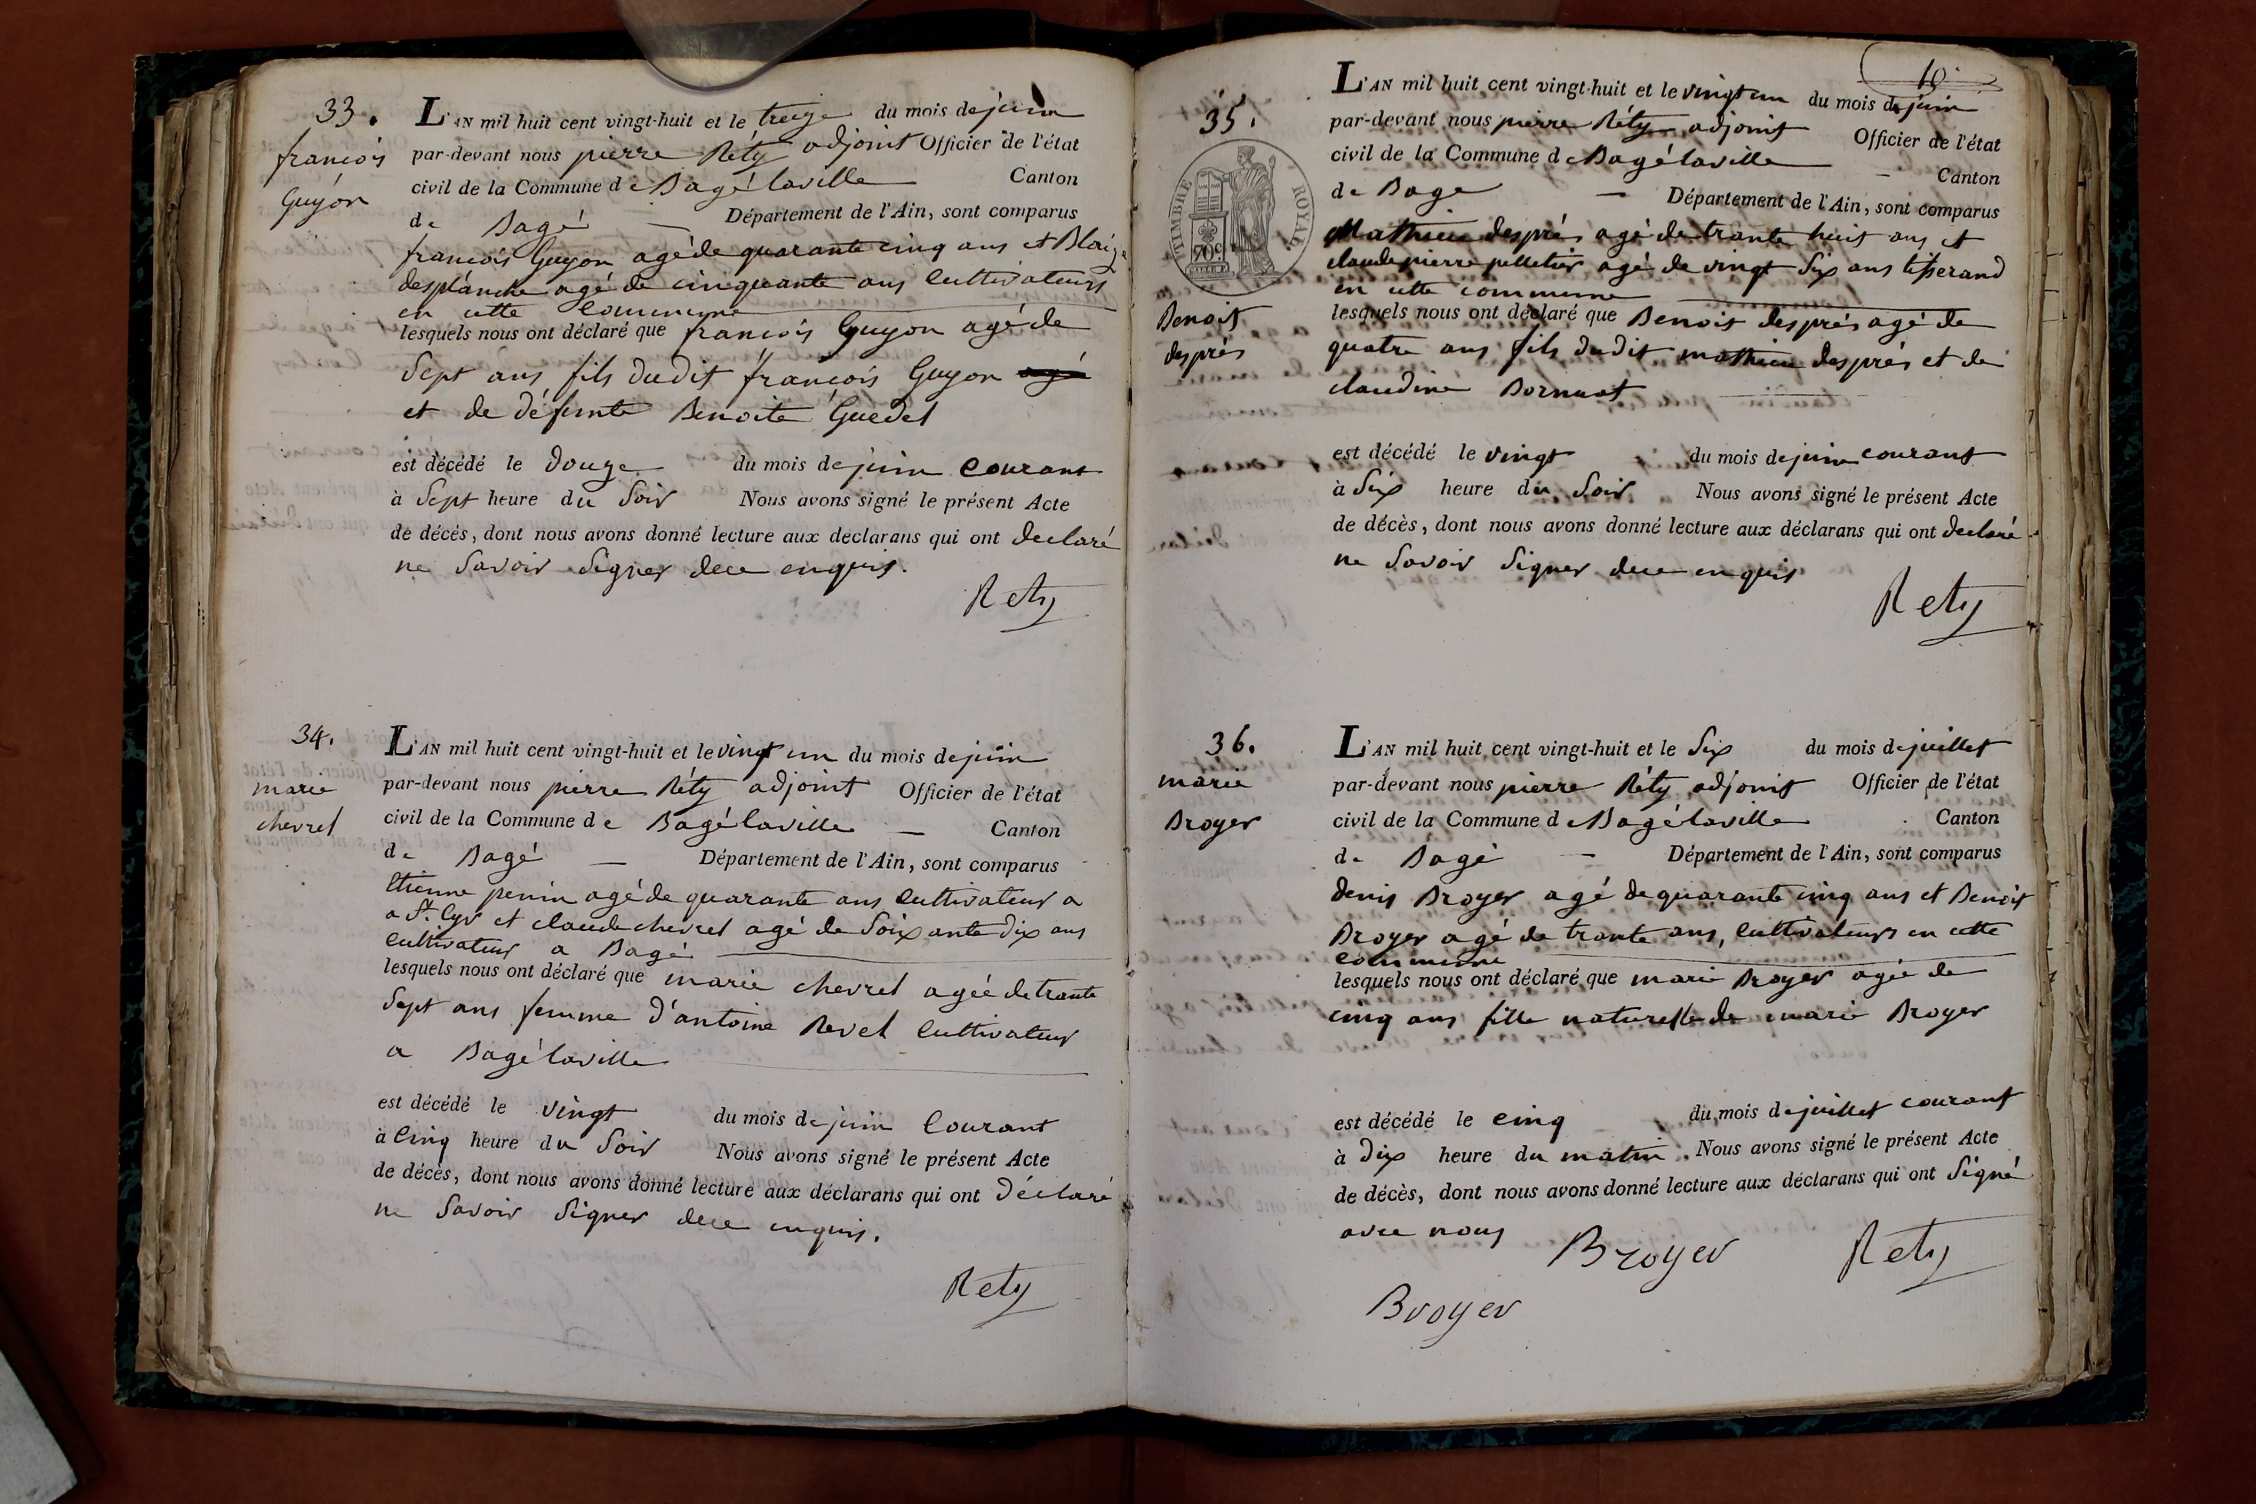 33.
francois
Guyon
L'AN mil huit cent vingt-huit et le treize du mois de juin
par-devant nous pierre Réty adjoint Officier de l'état
civil de la Commune de Bagélaville Canton
de Bagé — Département de l'Ain, sont comparus
francois Guyon agé de quarante cinq ans et Blaize
desplanche agé de cinquante ans cultivateurs
en cette commune
lesquels nous ont déclaré que francois Guyon agé de
Sept ans fils dudit francois Guyon agé
et de défunte Benoite Guedel
est décédé le douze du mois de juin courant
à Sept heure du Soir Nous avons signé le présent Acte
de décès, dont nous avons donné lecture aux declarans qui ont declaré
ne Savoir Signer dece enquis.
Rety
34.
marie
chevrel
L'AN mil huit cent vingt-huit et le vingt un du mois de juin
par-devant nous pierre Réty adjoint Officier de l'état
civil de la Commune de Bagélaville — Canton
de Bagé — Département de l'Ain, sont comparus
Etienne penin agé de quarante ans cultivateur a
a St. Cyr et claude chevrel agé de Soixante dix ans
cultivateur a Bagé
lesquels nous ont déclaré que marie chevrel agée de trante
Sept ans femme d'antoine Revel cultivateur
a Bagélaville
est décédé le vingt du mois de juin courant
à cinq heure du Soir Nous avons signé le présent Acte
de décès, dont nous avons donné lecture aux déclarans qui ont déclaré
ne Savoir Signer dece enquis.
Rety
10
35.
TIMBRE ROYAL
70c.
Benoit
després
L'AN mil huit cent vingt-huit et le vingt un du mois de juin
par-devant nous pierre Réty adjoint Officier de l'état
civil de la Commune de Bagélaville — Canton
de Bage — Département de l'Ain, sont comparus
Mathieu després agé de trante huit ans et
claude pierre pelletier agé de vingt Six ans tisserand
en cette commune
lesquels nous ont déclaré que Benoit després agé de
quatre ans fils dudit mathieu després et de
claudine Bornuat
est décédé le vingt du mois de juin courant
à Six heure du Soir Nous avons signé le présent Acte
de décès, dont nous avons donné lecture aux déclarans qui ont declaré
ne Savoir Signer dece enquis
Rety
36.
marie
Broyer
L'AN mil huit cent vingt-huit et le Six du mois de juillet
par-devant nous pierre Réty adjoint Officier de l'état
civil de la Commune de Bagélaville Canton
de Bagé — Département de l'Ain, sont comparus
denis Broyer agé de quarante cinq ans et Benoit
Broyer agé de trante ans, cultivateurs en cette
commune
lesquels nous ont déclaré que marie Broyer agée de
cinq ans fille naturelle de marie Broyer
est décédé le cinq du mois de juillet courant
à dix heure du matin. Nous avons signé le présent Acte
de décès, dont nous avons donné lecture aux déclarans qui ont Signé
avec nous
Broyer Rety
Broyer